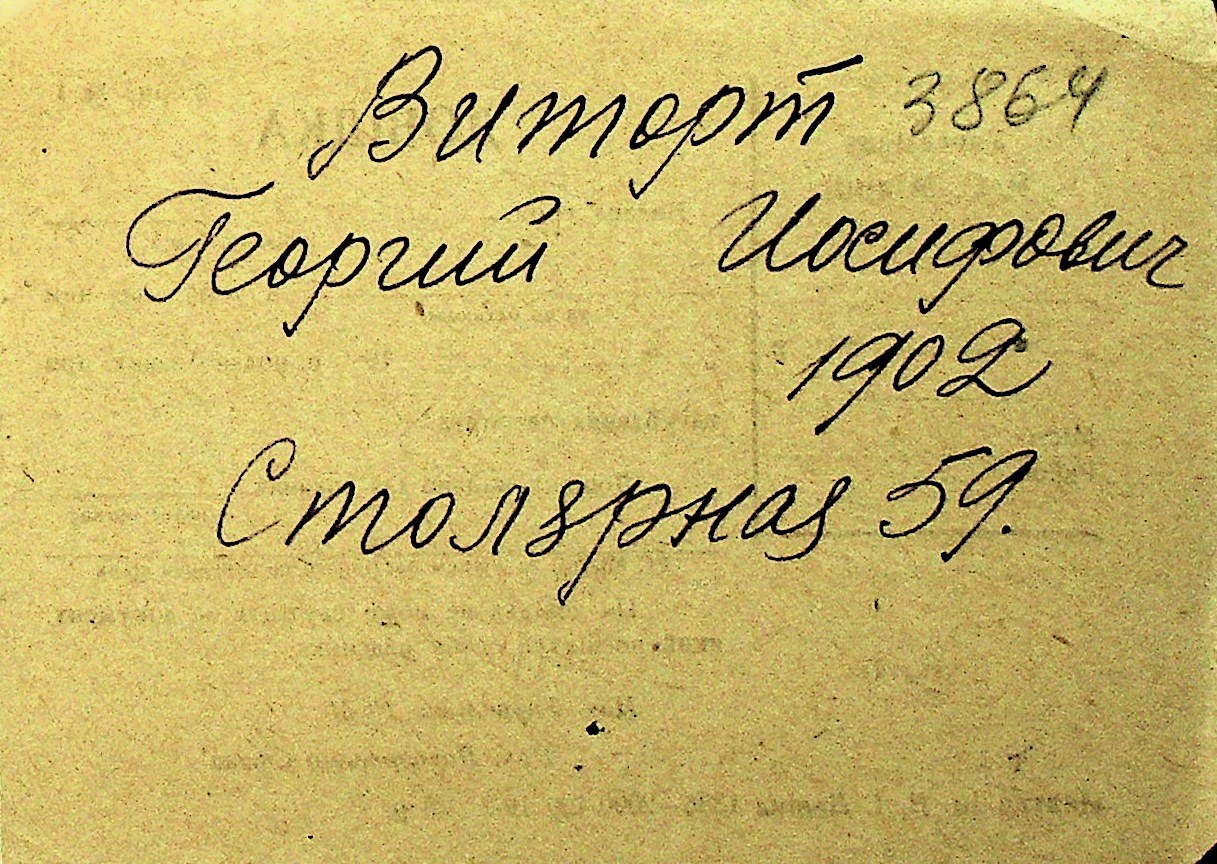 Виторт 3864
Георгий Иосифович
1902
Столярная 59.